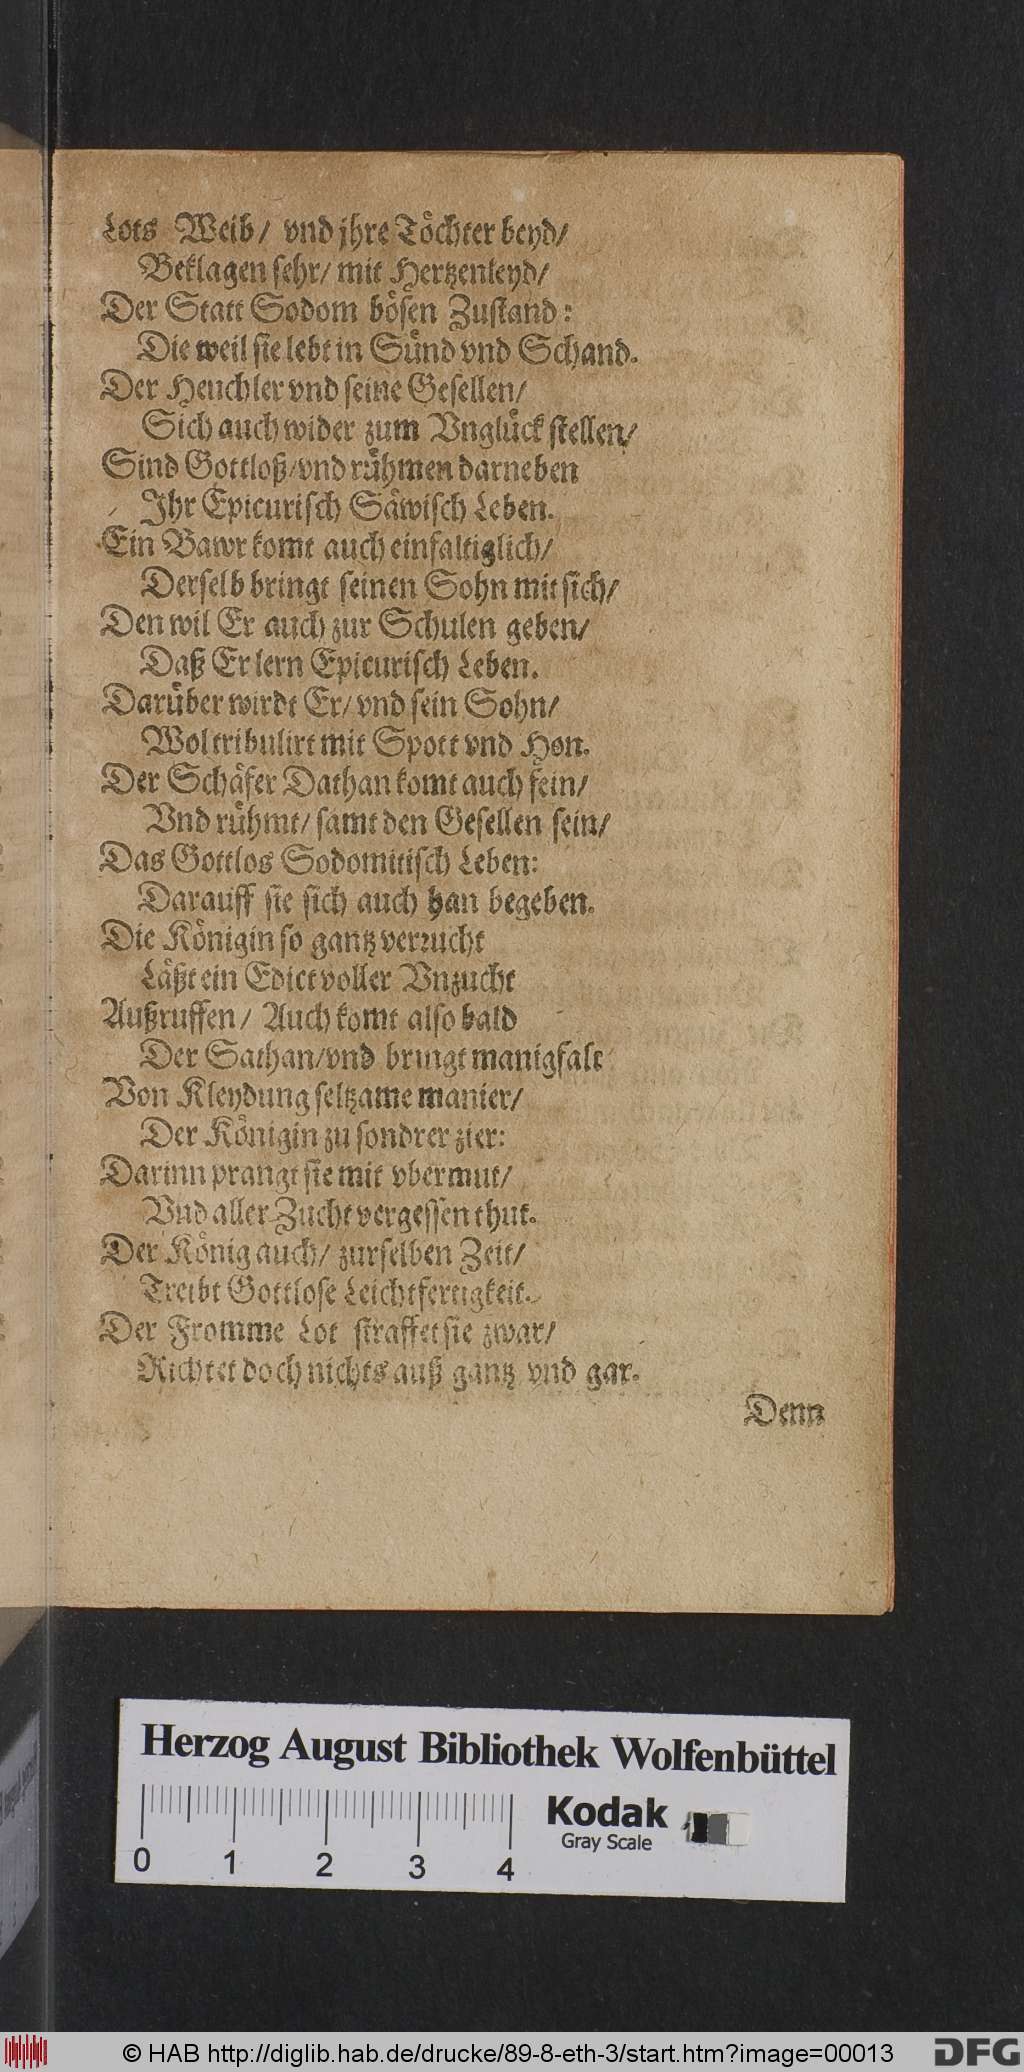 Lots Weib/ vnd jhre Töchter beyd/
Beklagen sehr/ mit Hertzenleyd/
Der Statt Sodom bösen Zustand:
Die weil sie lebt in Sünd vnd Schand.
Der Heuchler vnd seine Gesellen/
Sich auch wider zum Vnglück stellen/
Sind Gottloß/ vnd rühmen darneben
Ihr Epicurisch Säwisch Leben.
Ein Bawr komt auch einfaltiglich/
Derselb bringt seinen Sohn mit sich/
Den wil Er auch zur Schulen geben/
Daß Er lern Epicurisch Leben.
Darüber wirdt Er/ vnd sein Sohn/
Wol tribulirt mit Spott vnd Hon.
Der Schäfer Dathan komt auch fein/
Vnd rühmt/ samt den Gesellen sein/
Das Gottlos Sodomitisch Leben:
Darauff sie sich auch han begeben.
Die Königin so gantz verrucht
Läßt ein Edict voller Vnzucht
Außruffen/ Auch komt also bald
Der Sathan/ vnd bringt manigfalt
Von Kleydung seltzame manier/
Der Königin zu sondrer zier:
Darinn prangt sie mit vbermut/
Vnd aller Zucht vergessen thut.
Der König auch/ zurselben Zeit/
Treibt Gottlose Leichtfertigkeit.
Der Fromme Lot straffet sie zwar/
Richtet doch nichts auß gantz vnd gar.
Denn
Herzog August Bibliothek Wolfenbüttel
Kodak
Gray Scale
0 1 2 3 4
© HAB http://diglib.hab.de/drucke/89-8-eth-3/start.htm?image=00013
DFG